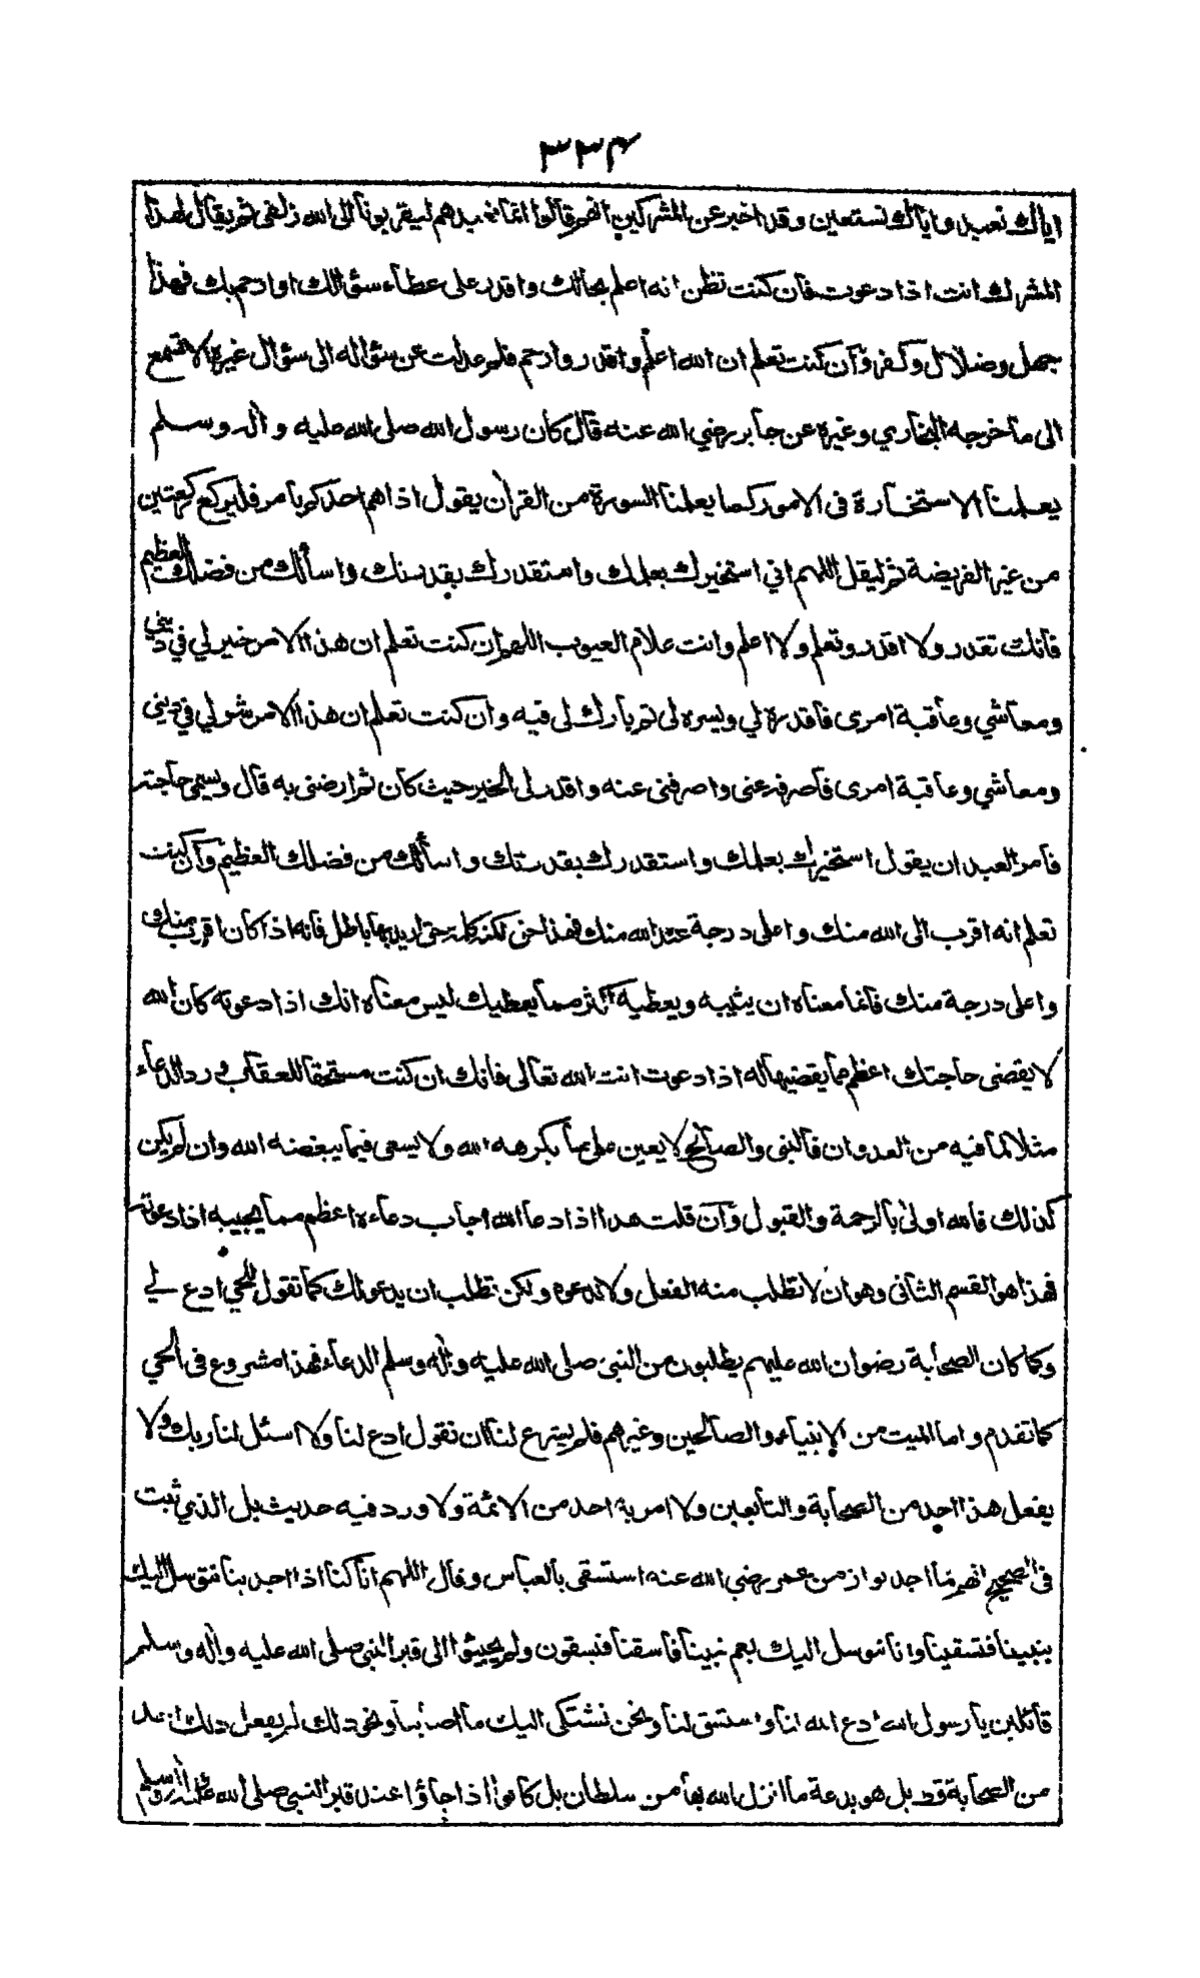 ٣٣٤
اياك نعبد واياك نستعين وقد اخبر عن المشركين انهم قالوا انما نعبدهم ليقربونا الى الله زلفى ثم يقال لهذا
المشرك انت اذا دعوت فان كنت تظن انه اعلم بحالك واقدر على عطاء سؤالك او ارحم بك فهذا
جهل وضلال وكفر وان كنت تعلم ان الله اعلم واقدر وارحم فلم عدلت عن سؤاله الى سؤال غيره الا تسمع
الى ما خرجه البخاري وغيره عن جابر رضي الله عنه قال كان رسول الله صلى الله عليه وآله وسلم
يعلمنا الاستخارة فى الامور كما يعلمنا السورة من القرآن يقول اذا هم احدكم بامر فليركع ركعتين
من غير الفريضة ثم ليقل اللهم اني استخيرك بعلمك واستقدرك بقدرتك واسألك من فضلك العظيم
فانك تقدر ولا اقدر وتعلم ولا اعلم وانت علام الغيوب اللهم ان كنت تعلم ان هذا الامر خير لي في ديني
ومعاشي وعاقبة امرى فاقدره لي ويسره لى ثم بارك لى فيه وان كنت تعلم ان هذا الامر شر لي في ديني
ومعاشي وعاقبة امرى فاصرفه عنى واصرفنى عنه واقدر لى الخير حيث كان ثم ارضنى به قال ويسمى حاجته
فامر العبد ان يقول استخيرك بعلمك واستقدرك بقدرتك واسألك من فضلك العظيم وان كنت
تعلم انه اقرب الى الله منك واعلى درجة عند الله منك فهذا حق لكنه كلمة حق اريد بها باطل فانه اذا كان اقرب منك
واعلى درجة منك فانما معناه ان يثيبه ويعطيه اكثر مما يعطيك ليس معناه انك اذا دعوته كان الله
لا يقضى حاجتك اعظم مما يقضيها له اذا دعوت انت الله تعالى فانك ان كنت مستحقا للعقاب ورد الدعاء
مثلا لما فيه من العدوان فالنبى والصالح لا يعين على ما يكرهه الله ولا يسعى فيما يبغضه الله وان لم يكن
كذلك فالله اولى بالرحمة والقبول وان قلت هذا اذا دعا الله اجاب دعاءه اعظم مما يجيبه اذا دعوته
فهذا هو القسم الثانى وهو ان لا تطلب منه الفعل ولا تدعوه ولكن تطلب ان يدعو لك كما تقول للحي ادع لي
وكما كان الصحابة رضوان الله عليهم يطلبون من النبى صلى الله عليه وآله وسلم الدعاء فهذا مشروع فى الحي
كما تقدم واما الميت من الانبياء والصالحين وغيرهم فلم يشرع لنا ان نقول ادع لنا ولا اسئل لنا ربك ولا
يفعل هذا احد من الصحابة والتابعين ولا امر به احد من الائمة ولا ورد فيه حديث بل الذي ثبت
فى الصحيح انهم لما اجدبوا زمن عمر رضي الله عنه استسقى بالعباس وقال اللهم انا كنا اذا اجدبنا نتوسل اليك
بنبينا فتسقينا وانا نتوسل اليك بعم نبينا فاسقنا فيسقون ولم يجيئوا الى قبر النبى صلى الله عليه وآله وسلم
قائلين يا رسول الله ادع الله لنا واستسق لنا ونحن نشتكى اليك ما اصابنا ونحو ذلك لم يفعل ذلك احد
من الصحابة قط بل هو بدعة ما انزل الله بها من سلطان بل كانوا اذا جاؤا عند قبر النبى صلى الله عليه وآله وسلم